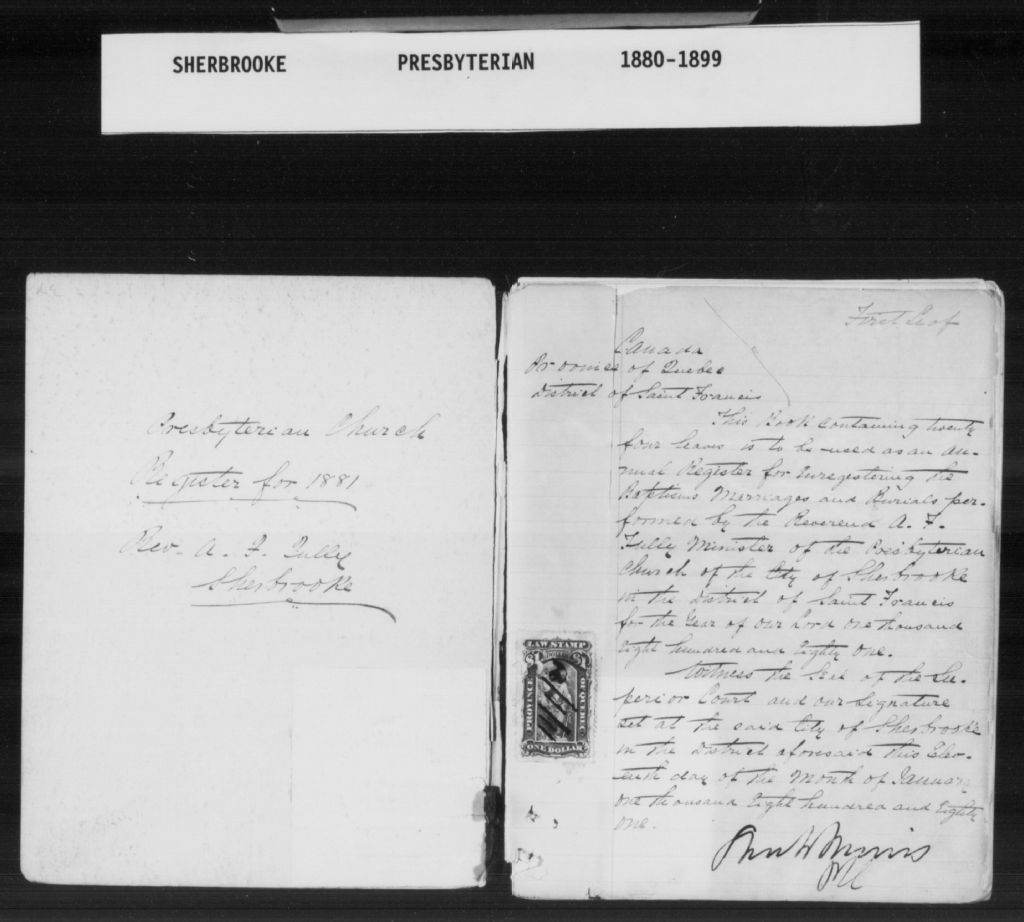 SHERBROOKE PRESBYTERIAN 1880-1899
Presbyterian Church
Register for 1881
Rev. A. F. Tully
Sherbrooke
First Leaf
Canada
Province of Quebec
District of Saint Francis
This Book containing twenty
four leaves is to be used as an an-
nual Register for Enregistering the
Baptisms Marriages and Burials per-
formed by the Reverend A. F.
Tully Minister of the Presbyterian
Church of the City of Sherbrooke
in the District of Saint Francis
for the Year of our Lord one thousand
Eight hundred and Eighty one.
Witness the Seal of the Su-
perior Court and our Signature
set at the said City of Sherbrooke
in the District aforesaid this Elev-
enth day of the Month of January
one thousand Eight hundred and Eighty
one.
LAW STAMP
$1 $1
PROVINCE OF QUEBEC
ONE DOLLAR